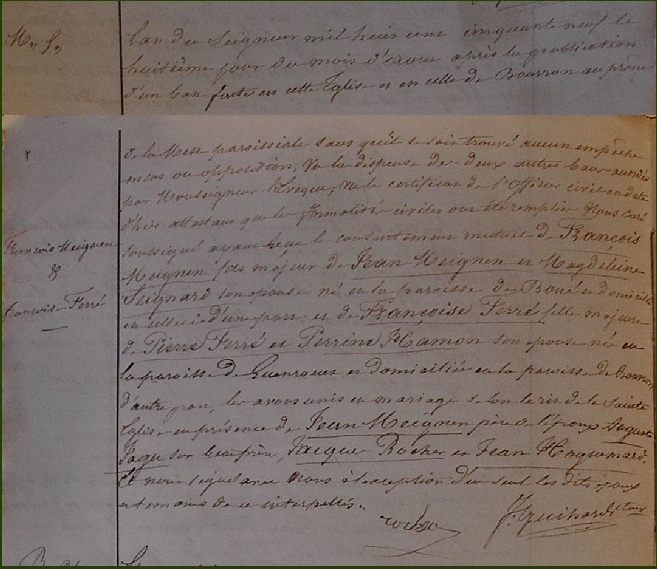 M. G.
L'an du Seigneur mil huit cent cinquante neuf le
huitième jour du mois d' après la publication
d'un ban faite en cette Eglise et en celle de Bouvron au prône
de la Messe paroissiale sans qu'il se soit trouvé aucun empêche
ment ou opposition, Vu la dispense de deux autres bans accordée
par Monseigneur l'Evêque, Vu le certificat de l'Officier civil en date
d'hier attestant que les formalités civiles ont été remplies Nous curé
soussigné ayant reçu le consentement mutuel de François
Meignen fils majeur de Jean Meignen et Magdeleine
Seignard son épouse né en la paroisse de Boué et domicilié
en celle ci d'une part et de Françoise Ferré fille majeure
de Pierre Ferré et Perrine Hamon son épouse née en
la paroisse de Guenrouet et domiciliée en la paroisse de Bouvron
d'autre part, les avons unis en mariage selon le rit de la Sainte
Eglise en présence de Jean Meignen père de l'époux Auguste
son beau frère, Jacque Rocher et Jean
et nous signé avec nous à l'exception d'un seul les dits époux
et témoins de ce interpellés.
François Meignen
&
Françoise Ferré
rocher
J. Guihard